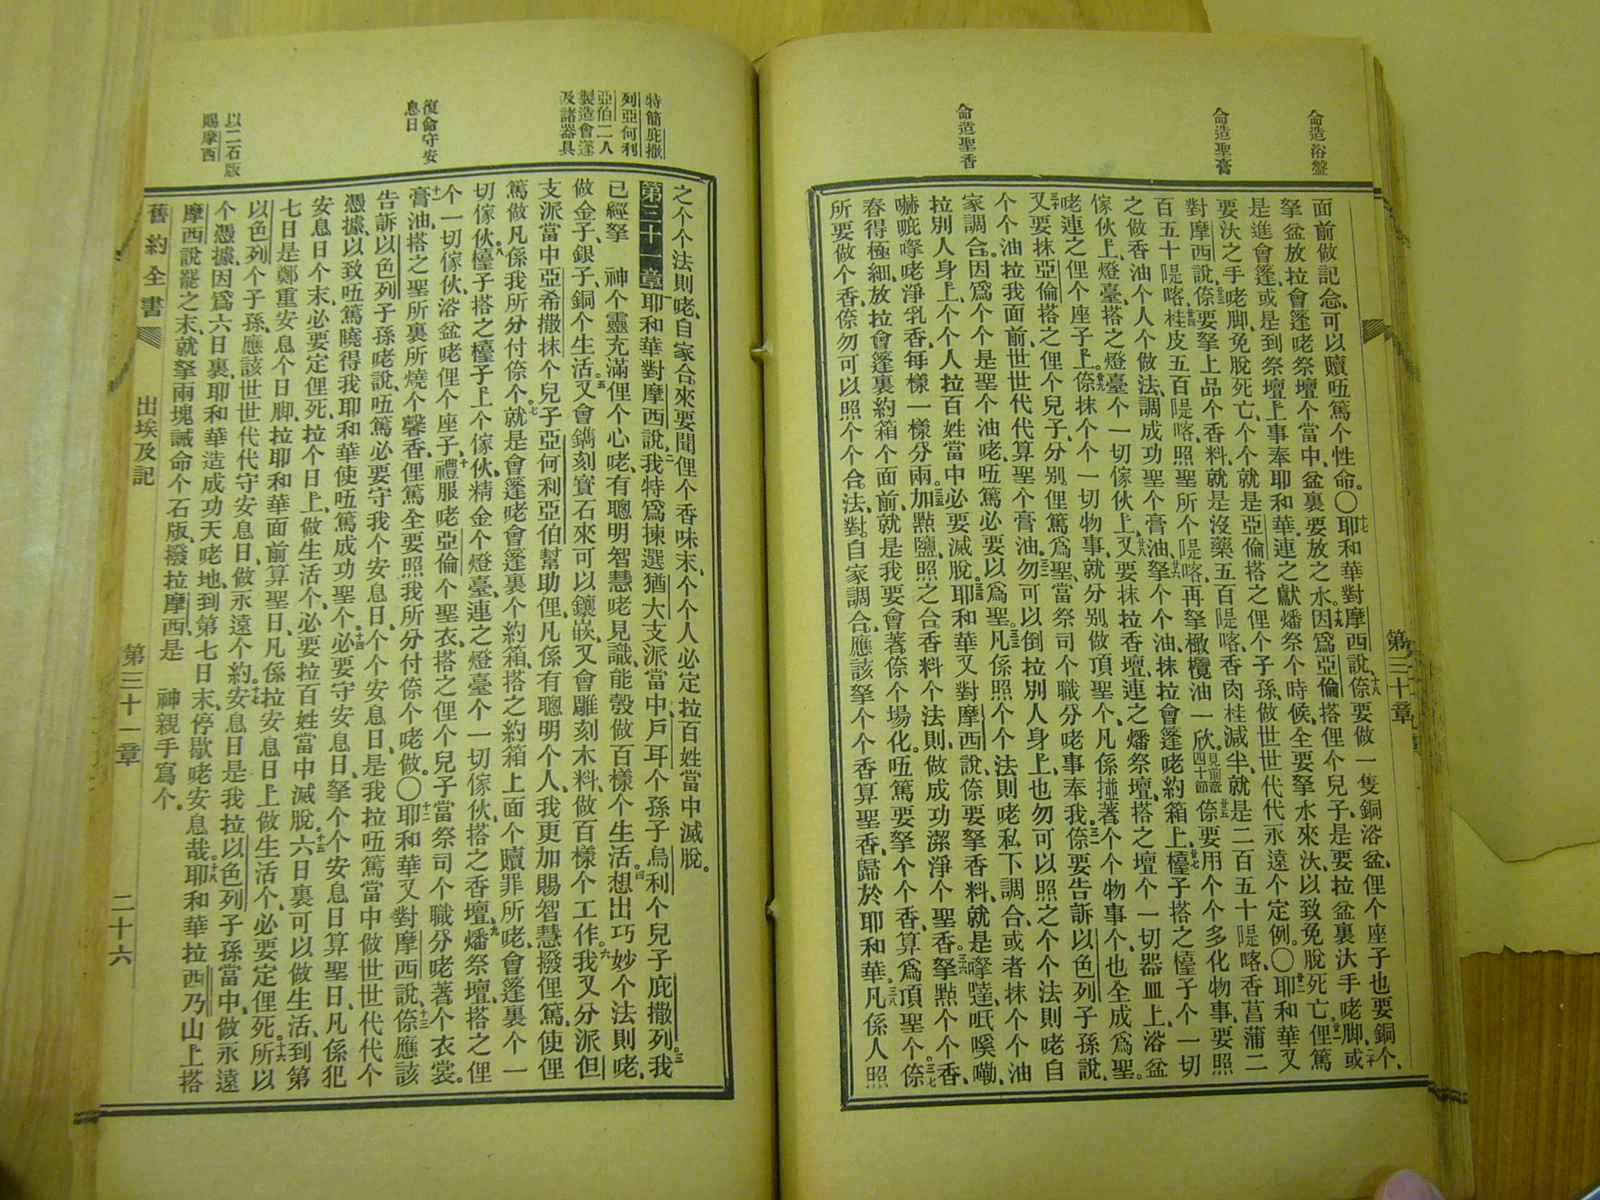 命造浴盤
命造聖膏
命造聖香
面前做記念、可以贖㕶篤个性命。〇耶和華對摩西說、㑚要做一隻銅浴盆、俚个座子也要銅个、
拏盆放拉會篷咾祭壇个當中、盆裏要放之水、因爲亞倫搭俚个兒子、是要拉盆裏汏手咾脚、或
是進會篷、或是到祭壇上事奉耶和華、連之獻燔祭个時候、全要拏水來汏、以致免脫死亡、俚篤
要汏之手咾脚、免脫死亡、个个就是亞倫搭之俚个子孫、做世世代代永遠个定例。〇耶和華又
對摩西說、㑚要拏上品个香料、就是沒藥五百隄喀、香肉桂減半、就是二百五十隄喀、香菖蒲二
百五十隄喀、桂皮五百隄喀、照聖所个隄喀、再拏橄欖油一欣、見前章四十節㑚要用个个多化物事、要照
之做香油个人个做法、調成功聖个膏油、拏个个油、抹拉會篷咾約箱上、檯子搭之檯子个一切
傢伙上、燈臺搭之燈臺个一切傢伙上、又要抹拉香壇、連之燔祭壇、搭之壇个一切器皿上、浴盆
咾連之俚个座子上、㑚抹个个一切物事、就分別做頂聖个、凡係掽著个个物事个、也全成爲聖。
又要抹亞倫搭之俚个兒子、分別俚篤爲聖、當祭司个職分咾事奉我、㑚要告訴以色列子孫說、
个个油拉我面前、世世代代算聖个膏油、勿可以倒拉別人身上、也勿可以照之个个法則咾自
家調合、因爲个个是聖个油咾、㕶篤必要以爲聖、凡係照个个法則咾私下調合、或者抹个个油
拉別人身上个、个个人拉百姓當中、必要滅脫、耶和華又對摩西說、㑚要拏香料、就是
咾淨乳香、每樣一樣分兩、加點鹽、照之合香料个法則、做成功潔淨个聖香、拏點个个香、
舂得極細、放拉會篷裏約箱个面前、就是我要會著㑚个場化、㕶篤要拏个个香、算爲頂聖个、㑚
所要做个香、㑚勿可以照个个合法、對自家調合、應該拏个个香算聖香、歸於耶和華、凡係人照
第三十章
特簡庇撒
列亞何利
亞伯二人
製造會篷
及諸器具
復命守安
息日
以二石版
賜摩西
之个个法則咾、自家合來要聞俚个香味末、个个人必定拉百姓當中滅脫。
第三十一章耶和華對摩西說、我特爲揀選猶大支派當中、戶耳个孫子、烏利个兒子庇撒列、我
已經拏　神个靈充滿俚个心咾、有聰明智慧咾見識、能彀做百樣个生活、想出巧妙个法則咾、
做金子、銀子、銅个生活、又會鐫刻寶石來可以鑲嵌、又會雕刻木料、做百樣个工作、我又分派但
支派當中亞希撒抹个兒子亞何利亞伯幫助俚、凡係有聰明个人、我更加賜智慧撥俚篤、使俚
篤做凡係我所分付㑚个、就是會篷咾會篷裏个約箱、搭之約箱上面个贖罪所咾、會篷裏个一
切傢伙、檯子搭之檯子上个傢伙、精金个燈臺、連之燈臺个一切傢伙、搭之香壇、燔祭壇、搭之俚
个一切傢伙、浴盆咾俚个座子、禮服咾亞倫个聖衣、搭之俚个兒子當祭司个職分咾著个衣裳。
膏油、搭之聖所裏所燒个馨香、俚篤全要照我所分付㑚个咾做。〇耶和華又對摩西說、㑚應該
告訴以色列子孫咾說、㕶篤必要守我个安息日、个个安息日、是我拉㕶篤當中做世世代代个
憑據、以致㕶篤曉得我耶和華使㕶篤成功聖个、必要守安息日、拏个个安息日算聖日、凡係犯
安息日个末、必要定俚死、拉个日上、做生活个、必要拉百姓當中滅脫、六日裏可以做生活、到第
七日是鄭重安息个日脚、拉耶和華面前算聖日、凡係拉安息日上做生活个、必要定俚死、所以
以色列个子孫、應該世世代代守安息日、做永遠个約、安息日是我拉以色列子孫當中、做永遠
个憑據、因爲六日裏、耶和華造成功天咾地、到第七日末、停歇咾安息哉、耶和華拉西乃山上搭
摩西說罷之末、就拏兩塊誡命个石版、撥拉摩西、是　神親手寫个。
舊約全書　出埃及記　第三十一章　二十六